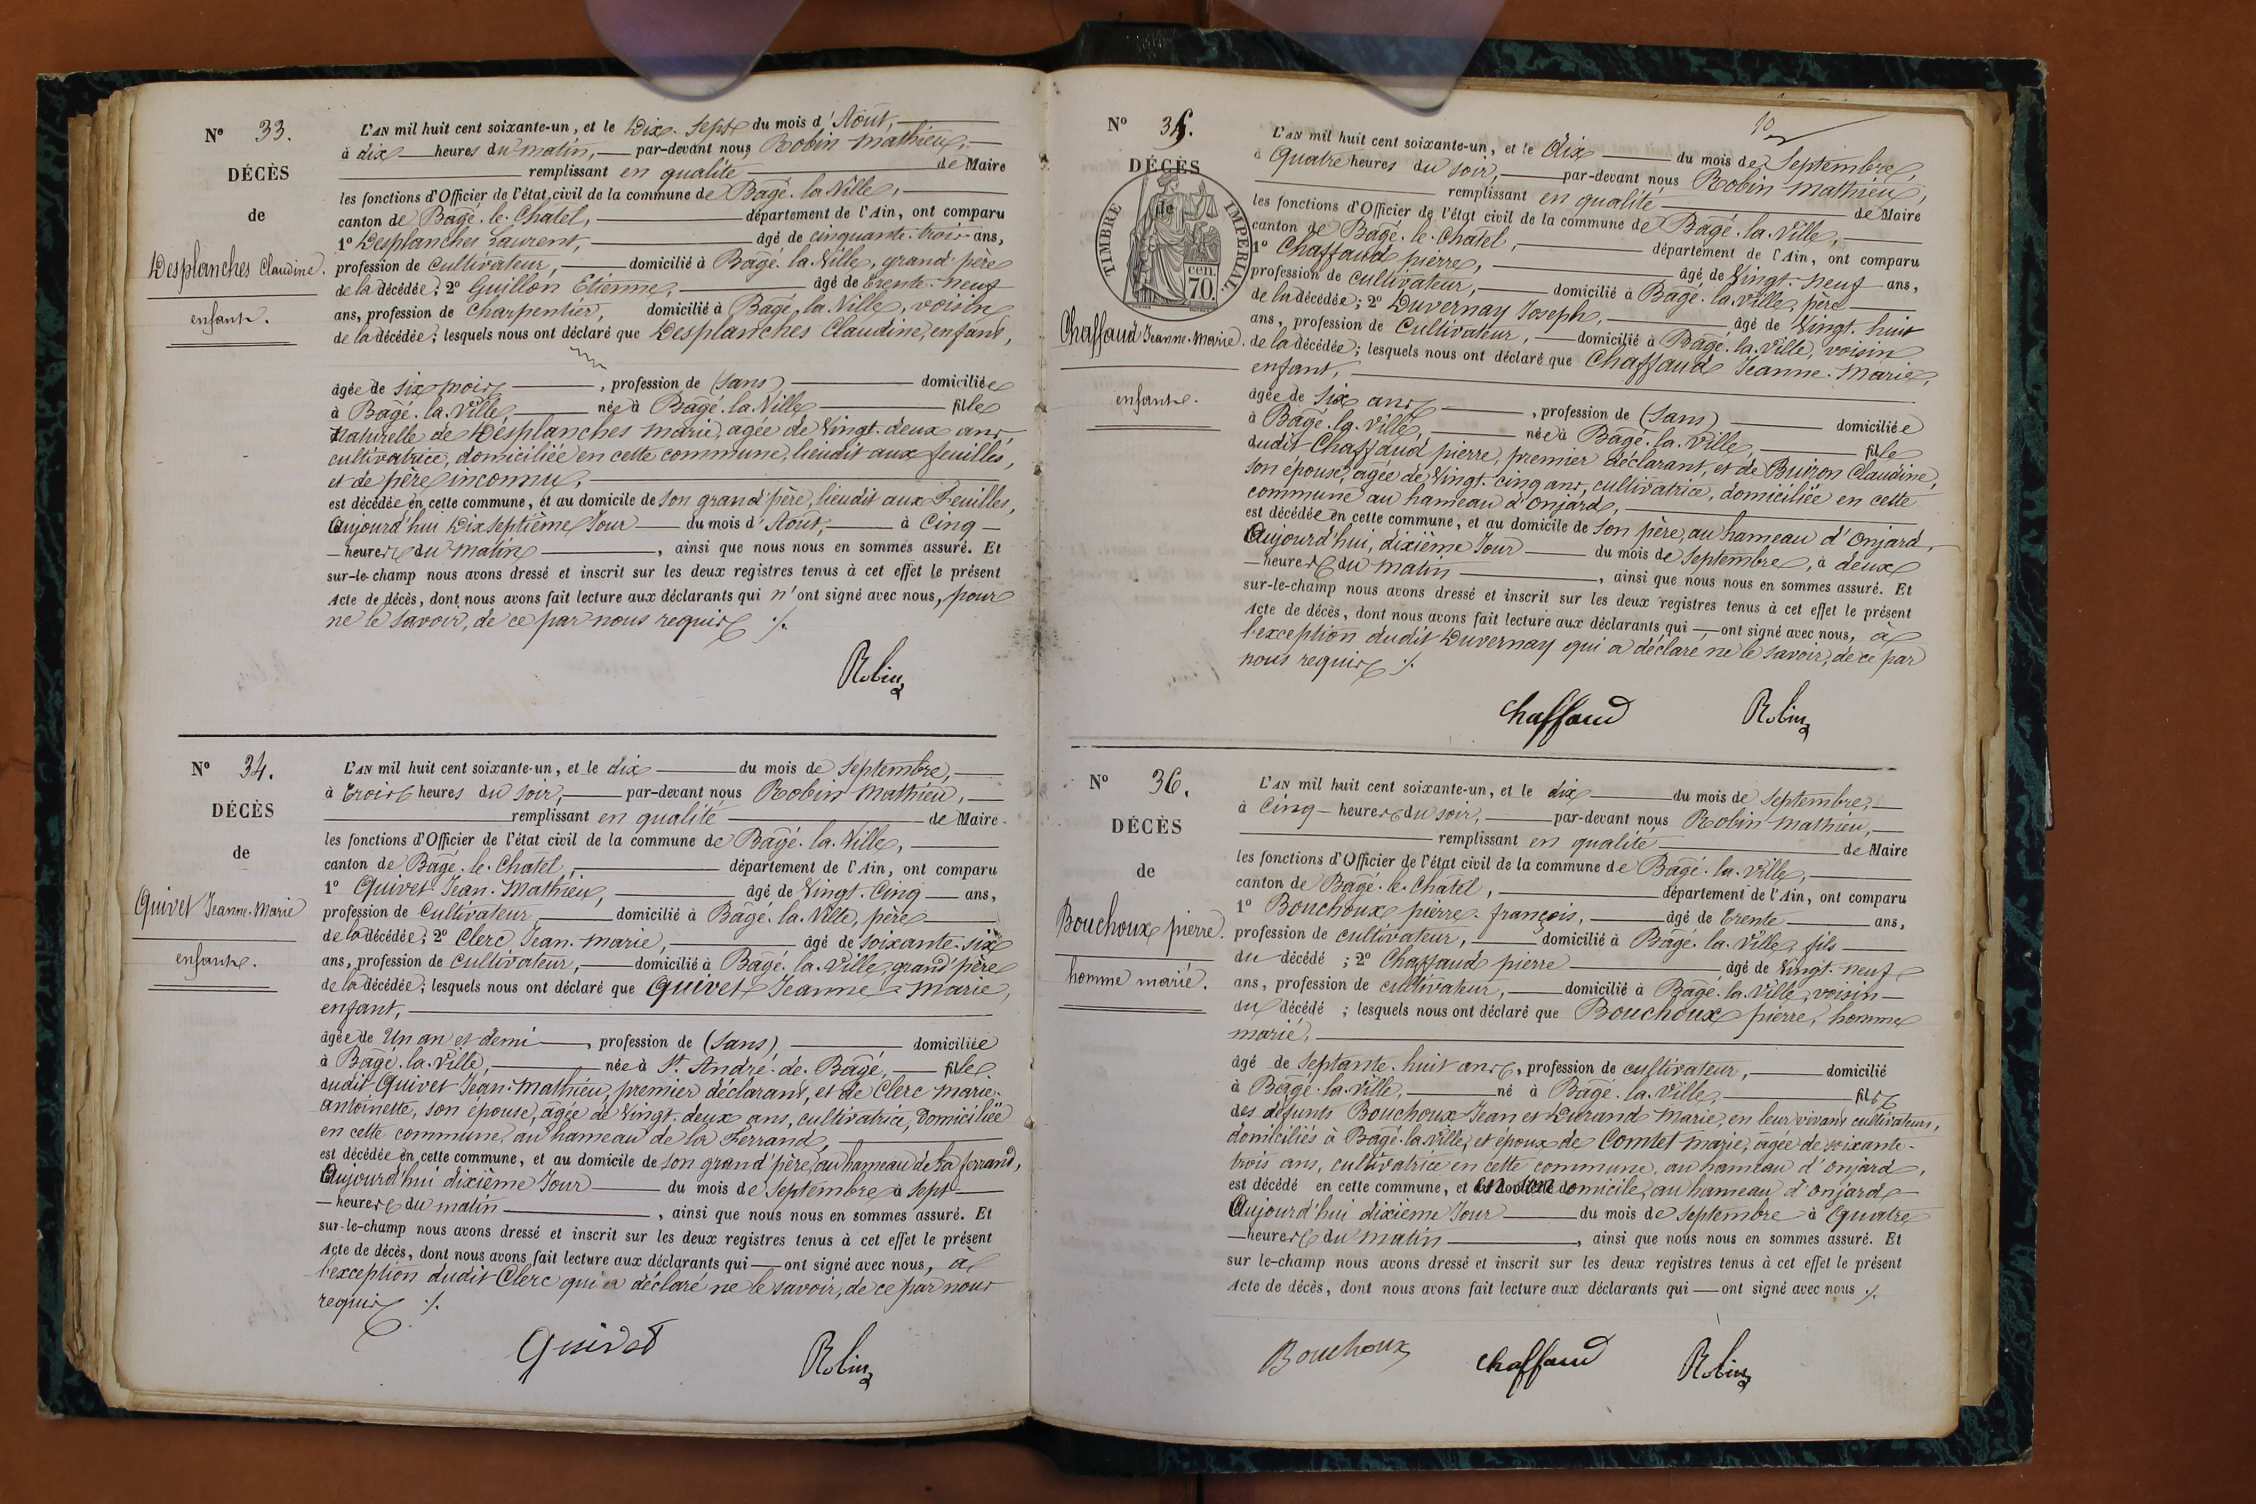 N° 33.
DÉCÈS
de
Desplanches Claudine.
enfant.
L'AN mil huit cent soixante-un, et le Dix-Sept du mois d'Août,
à dix heures du matin, par-devant nous Robin Mathieu,
remplissant en qualité de Maire
les fonctions d'Officier de l'état civil de la commune de Bagé-la-Ville,
canton de Bagé-le-Châtel, département de l'Ain, ont comparu
1° Desplanches Laurent, âgé de cinquante-trois ans,
profession de cultivateur, domicilié à Bagé-la-Ville, grand'père
de la décédée; 2° Guillon Etienne, âgé de trente-neuf
ans, profession de Charpentier, domicilié à Bagé-la-Ville, voisin
de la décédée; lesquels nous ont déclaré que Desplanches Claudine, enfant,
âgée de six mois, profession de (sans) domiciliée
à Bagé-la-Ville, née à Bagé-la-Ville fille
Naturelle de Desplanches Marie, agée de Vingt-deux ans,
cultivatrice, domiciliée en cette commune, lieudit aux feuilles,
et de père inconnu,
est décédée en cette commune, et au domicile de son grand'père, lieudit aux Feuilles,
Aujourd'hui Dixseptième Jour du mois d'Août, à Cinq
heures du matin, ainsi que nous nous en sommes assuré. Et
sur-le-champ nous avons dressé et inscrit sur les deux registres tenus à cet effet le présent
Acte de décès, dont nous avons fait lecture aux déclarants qui n'ont signé avec nous, pour
ne le savoir, de ce par nous requis ./.
Robin
N° 34.
DÉCÈS
de
Quivet Jeanne-Marie
enfant.
L'AN mil huit cent soixante-un, et le dix du mois de Septembre,
à trois heures du soir, par-devant nous Robin Mathieu,
remplissant en qualité de Maire
les fonctions d'Officier de l'état civil de la commune de Bagé-la-Ville,
canton de Bagé-le-Châtel, département de l'Ain, ont comparu
1° Quivet Jean-Mathieu, âgé de Vingt-Cinq ans,
profession de Cultivateur, domicilié à Bagé-la-Ville, père
de la décédée; 2° Clerc Jean-Marie, âgé de soixante-six
ans, profession de Cultivateur, domicilié à Bagé-la-Ville, grand'père
de la décédée; lesquels nous ont déclaré que Quivet Jeanne-Marie,
enfant,
âgée de Un an et demi, profession de (sans) domiciliée
à Bagé-la-Ville, née à St André-de-Bagé, fille
dudit Quivet Jean-Mathieu, premier déclarant, et de Clerc Marie-
Antoinette, son épouse, agée de Vingt-deux ans, cultivatrice, Domiciliée
en cette commune, au hameau de la Ferrand,
est décédée en cette commune, et au domicile de son grand'père, au hameau de la ferrand,
Aujourd'hui dixième Jour du mois de Septembre à sept
heures du matin, ainsi que nous nous en sommes assuré. Et
sur-le-champ nous avons dressé et inscrit sur les deux registres tenus à cet effet le présent
Acte de décès, dont nous avons fait lecture aux déclarants qui ont signé avec nous, à
l'exception dudit Clerc qui a déclaré ne le savoir, de ce par nous
requis ./.
Quivet Robin
10
N° 35.
DÉCÈS
de
TIMBRE IMPERIAL
70 cen.
Chaffaud Jeanne-Marie.
enfant.
L'AN mil huit cent soixante-un, et le dix du mois de Septembre,
à Quatre heures du soir, par-devant nous Robin Mathieu,
remplissant en qualité de Maire
les fonctions d'Officier de l'état civil de la commune de Bagé-la-Ville,
canton de Bagé-le-Châtel, département de l'Ain, ont comparu
1° Chaffaud pierre, âgé de Vingt-neuf ans,
profession de cultivateur, domicilié à Bagé-la-Ville, père
de la décédée; 2° Duvernay Joseph, âgé de Vingt-huit
ans, profession de Cultivateur, domicilié à Bagé-la-Ville, voisin
de la décédée; lesquels nous ont déclaré que Chaffaud Jeanne-Marie,
enfant,
âgée de six ans, profession de (sans) domiciliée
à Bagé-la-Ville, née à Bagé-la-Ville, fille
dudit Chaffaud pierre, premier déclarant, et de Buiron Claudine,
son épouse, agée de Vingt-cinq ans, cultivatrice, domiciliée en cette
commune au hameau d'onjard,
est décédée en cette commune, et au domicile de son père, au hameau d'onjard,
Aujourd'hui, dixième Jour du mois de Septembre, à deux
heures du matin, ainsi que nous nous en sommes assuré. Et
sur-le-champ nous avons dressé et inscrit sur les deux registres tenus à cet effet le présent
Acte de décès, dont nous avons fait lecture aux déclarants qui ont signé avec nous, à
l'exception dudit Duvernay qui a déclaré ne le savoir, de ce par
nous requis ./.
Chaffaud Robin
N° 36.
DÉCÈS
de
Bouchoux pierre.
homme marié.
L'AN mil huit cent soixante-un, et le dix du mois de Septembre,
à Cinq heures du soir, par-devant nous Robin Mathieu,
remplissant en qualité de Maire
les fonctions d'Officier de l'état civil de la commune de Bagé-la-Ville,
canton de Bagé-le-Châtel, département de l'Ain, ont comparu
1° Bouchoux pierre-françois, âgé de trente ans,
profession de cultivateur, domicilié à Bagé-la-Ville, fils
du décédé; 2° Chaffaud pierre âgé de Vingt-neuf
ans, profession de cultivateur, domicilié à Bagé-la-Ville, voisin
du décédé; lesquels nous ont déclaré que Bouchoux pierre, homme
marié,
âgé de Septante-huit ans, profession de cultivateur, domicilié
à Bagé-la-Ville, né à Bagé-la-Ville, fils
des défunts Bouchoux Jean et Durand Marie, en leur vivant cultivateurs,
domiciliés à Bagé-la-Ville, et époux de Comtet Marie, agée de soixante-
trois ans, cultivatrice en cette commune, au hameau d'onjard,
est décédé en cette commune, et en son domicile, au hameau d'onjard
Aujourd'hui dixième Jour du mois de Septembre à Quatre
heures du matin, ainsi que nous nous en sommes assuré. Et
sur le-champ nous avons dressé et inscrit sur les deux registres tenus à cet effet le présent
Acte de décès, dont nous avons fait lecture aux déclarants qui ont signé avec nous ./.
Bouchoux Chaffaud Robin